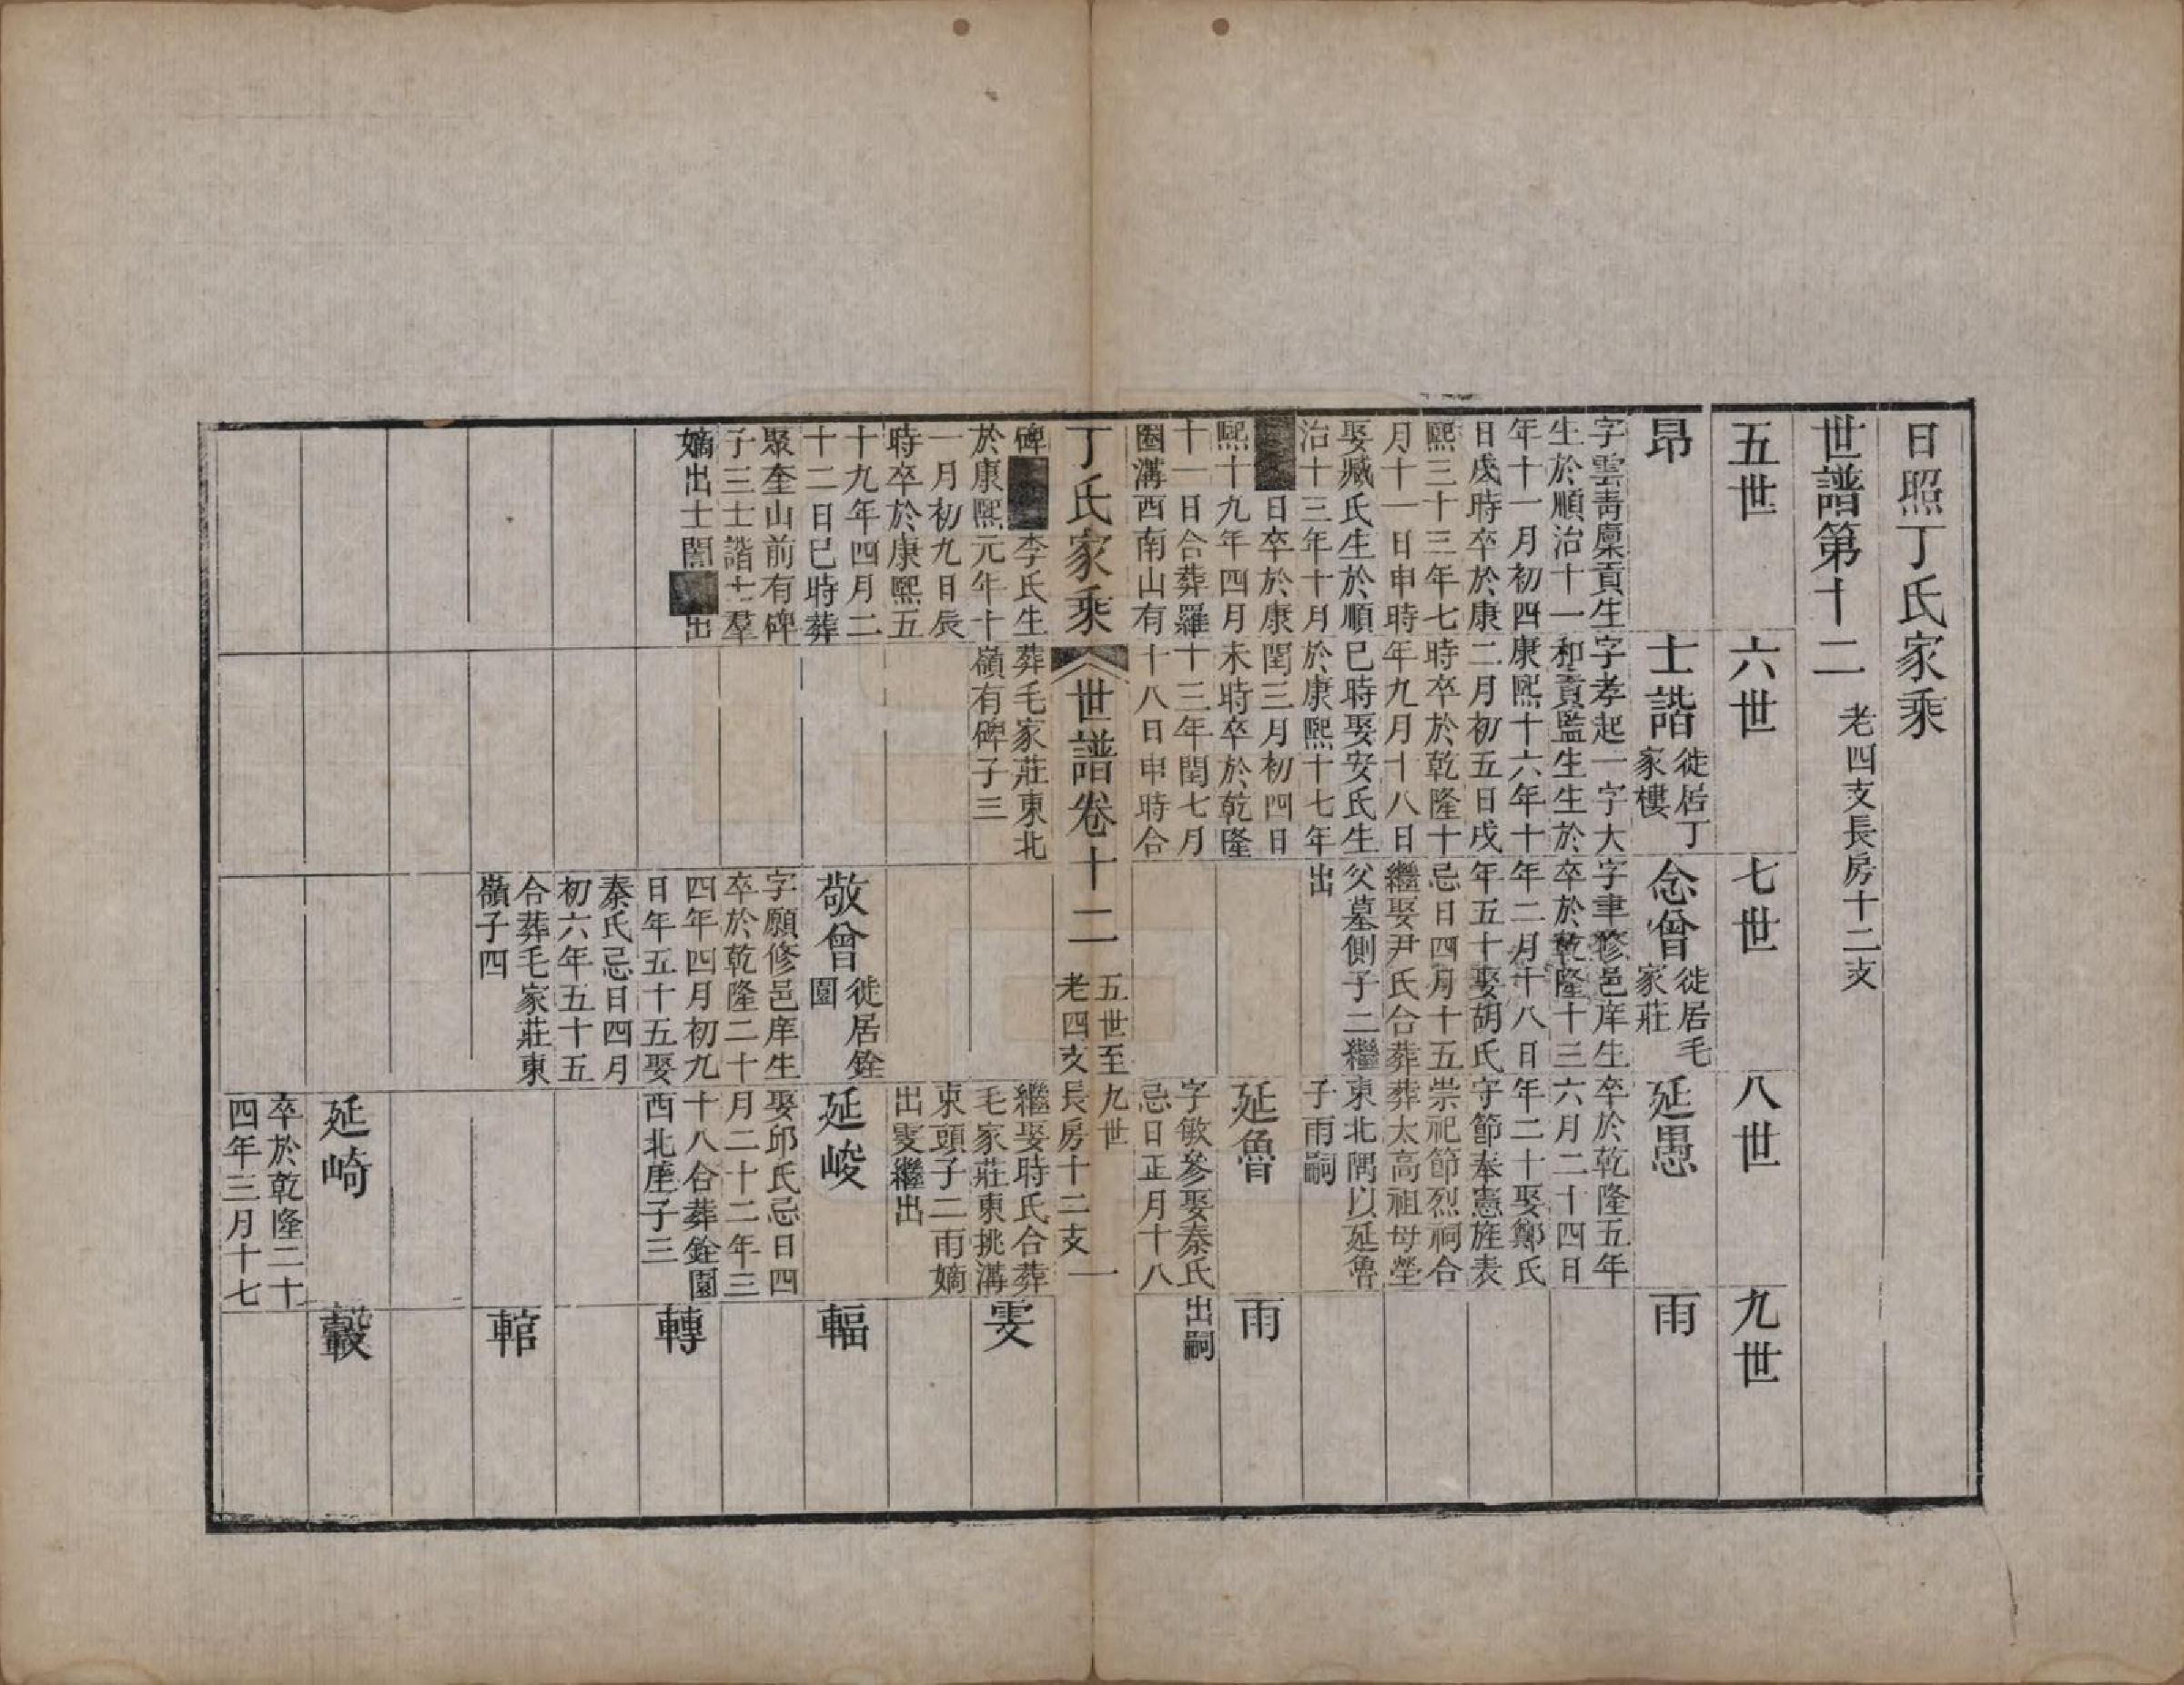 日照丁氏家乘
世譜第十二 老四支長房十二支
五世
六世
七世
八世
九世
昂
字雲靑廩貢生
生於順治十一
年十一月初四
日戌時卒於康
熙三十三年七
月十一日申時
娶臧氏生於順
治十三年十月
日卒於康
熙十九年四月
十一日合葬羅
圈溝西南山有
碑 李氏生
於康熙元年十
一月初九日辰
時卒於康熙五
十九年四月二
十二日巳時葬
聚奎山前有碑
子三士諧士羣
嫡出士誾 出
士諧 徙居丁
家樓
字孝起一字大
和貢監生生於
康熙十六年十
二月初五日戌
時卒於乾隆十
年九月十八日
巳時娶安氏生
於康熙十七年
閏三月初四日
未時卒於乾隆
十三年閏七月
十八日申時合
葬毛家莊東北
嶺有碑子三
念曾 徙居毛
家莊
字聿修邑庠生
卒於乾隆十三
年二月十八日
年五十娶胡氏
忌日四月十五
繼娶尹氏合葬
父墓側子二繼
出
敬曾 徙居銓
園
字願修邑庠生
卒於乾隆二十
四年四月初九
日年五十五娶
秦氏忌日四月
初六年五十五
合葬毛家莊東
嶺子四
延愚
卒於乾隆五年
六月二十四日
年二十娶鄭氏
守節奉憲旌表
崇祀節烈祠合
葬太高祖母塋
東北隅以延魯
子雨嗣
延魯
字敏參娶秦氏
忌日正月十八
繼娶時氏合葬
毛家莊東挑溝
東頭子二雨嫡
出雯繼出
延峻
娶邱氏忌日四
月二十二年三
十八合葬銓園
西北崖子三
延崎
卒於乾隆二十
四年三月十七
雨
雨
出嗣
雯
輻
轉
輨
轂
丁氏家乘 世譜卷十二 五世至九世
老四支長房十二支 一